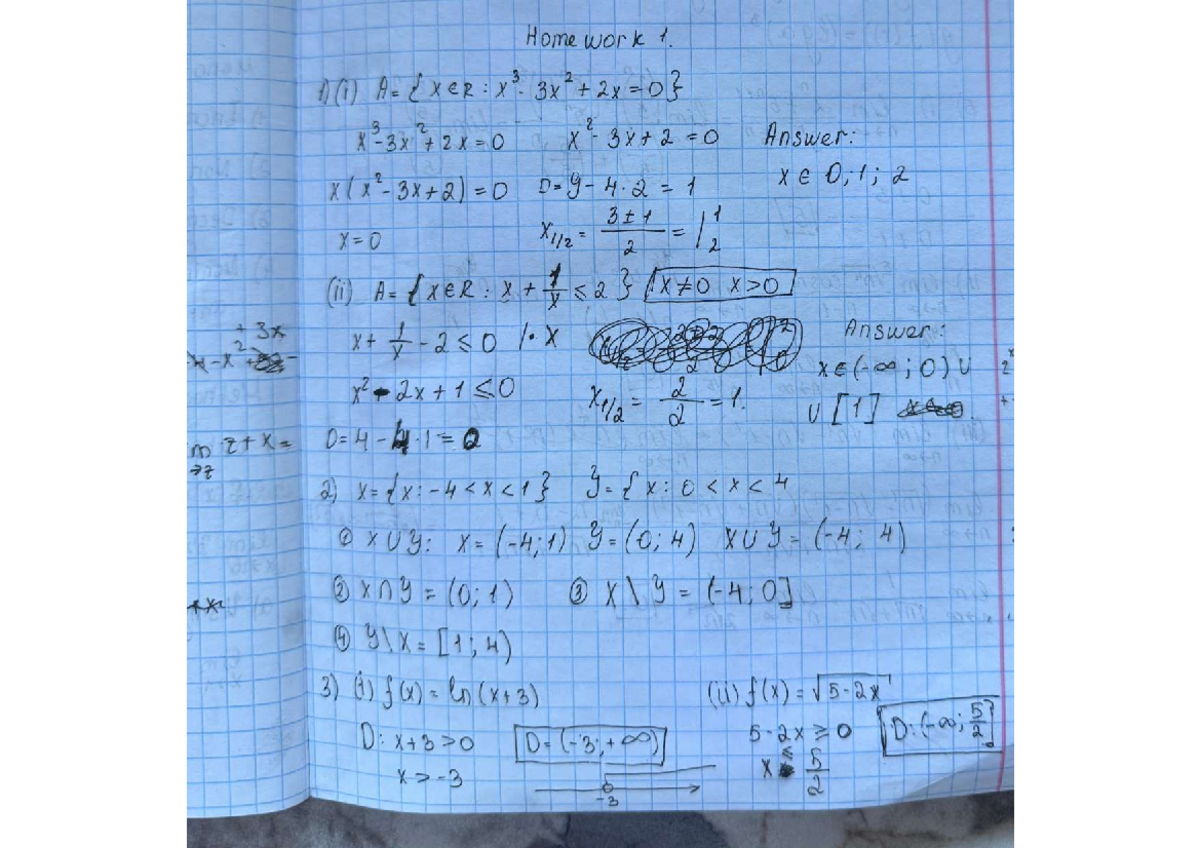 Homework 1.
1) (i) A = { x ∈ R : x³ - 3x² + 2x = 0 }
x³ - 3x² + 2x = 0 x² - 3x + 2 = 0 Answer:
x(x² - 3x + 2) = 0 D = 9 - 4 · 2 = 1 x ∈ 0; 1; 2
x = 0 x1/2 = (3 ± 1)/2 = | 1 2
(ii) A = { x ∈ R : x + 1/x ≤ 2 } x ≠ 0 x > 0
+ 3x
x + 1/x - 2 ≤ 0 | · x Answer:
x² - 2x + 1 ≤ 0 x1/2 = 2/2 = 1. x ∈ (-∞; 0) ∪
∪ [1]
z + x =
D = 4 - 4 · 1 = 0
2) X = { x : -4 < x < 1 } Y = { x : 0 < x < 4
① X ∪ Y : X = (-4; 1) Y = (0; 4) X ∪ Y = (-4; 4)
② X ∩ Y = (0; 1) ③ X \ Y = (-4; 0]
④ Y \ X = [1; 4)
3) (i) f(x) = ln(x+3) (ii) f(x) = √(5-2x)
D: x+3 > 0 D = (-3; +∞) 5-2x ≥ 0 D: (-∞; 5/2]
x > -3 x ≤ 5/2
-3